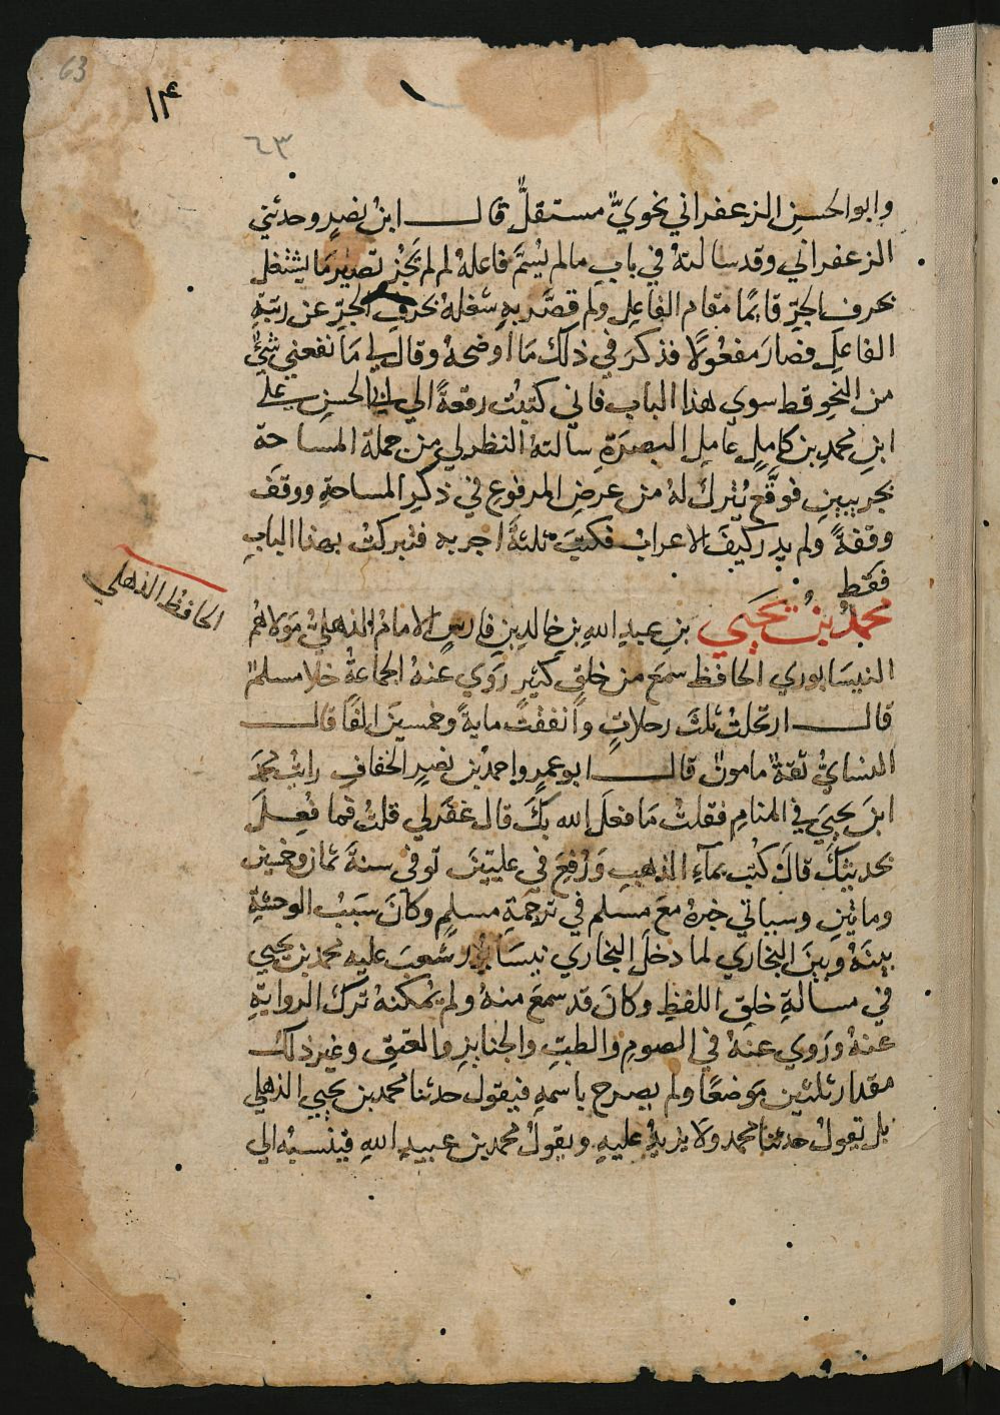 63
١٤
٦٣
وابو الحسن الزعفراني نحويّ مستقلّ قال ابن نصر وحدثني
الزعفراني وقد سالته في باب مالم يُسَمَّ فاعله لم لم يَجُز تصيير ما يشتغل
بحرف الجرّ قايمًا مقام الفاعل ولم قصّر به شغله بحرف الجرّ عن رتبة
الفاعل فصار مفعولًا فذكر في ذلك ما اوضحه وقال لي ما نفعني شيٌ
من النحو قط سوي هذا الباب فاني كتبت رقعةً الي ابي الحسن علي
ابن محمد بن كامل عامل البصرة سالته النظر لي من جملة المساحة
بجريبين فوقّع يُترك له من عرض المرفوع في ذكر المساحة ووقف
وقفةً ولم يدر كيف الاعراب فكتب ثلثة اجربه فتبركت بهذا الباب
فقط
الحافظ الذهلي
محمد بن يحيي بن عبد الله بن خالد بن فارس الامام الذهلي مولاهم
النيسابوري الحافظ سمع من خلق كثير روي عنه الجماعة خلا مسلم
قال ارتحلت ثلث رحلات وانفقت ماية وخمسين الفا قال
النساي ثقة مامون قال ابو عمرو احمد بن نصر الخفاف رايت محمد
ابن يحيي في المنام فقلت ما فعل الله بك قال غفر لي قلت فما فعل
بحديثك قال كُتب بماء الذهب ورُفع في عليين توفى سنة ثمان وخمسين
وماتين وسياتي خبره مع مسلم في ترجمة مسلم وكان سبب الوحشة
بينه وبين البخاري لما دخل البخاري نيسابور شعب عليه محمد بن يحيي
في مسالة خلق اللفظ وكان قد سمع منه ولم يمكنه ترك الرواية
عنه وروي عنه في الصوم والطب والجنايز والعتق وغير ذلك
مقدار ثلثين موضعًا ولم يصرح باسمه فيقول حدثنا محمد بن يحيي الذهلي
بل يقول حدثنا محمد ولا يزيد عليه ويقول محمد بن عبيد الله فينسبه الي